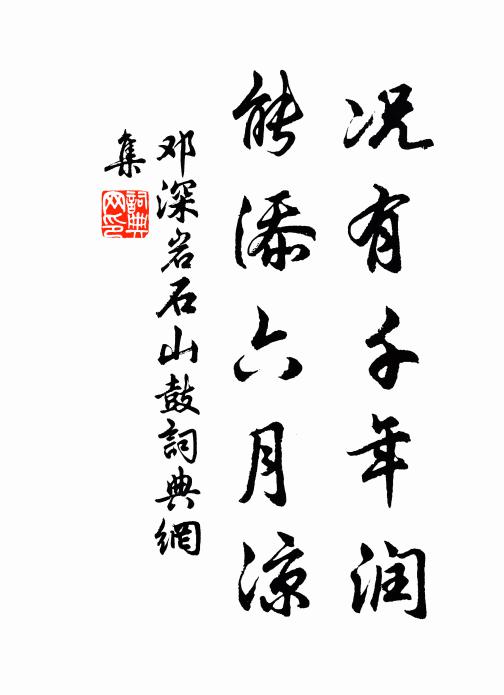 况有千年润
能添六月凉
邓深岩石山鼓词典網
集
詞典
网印